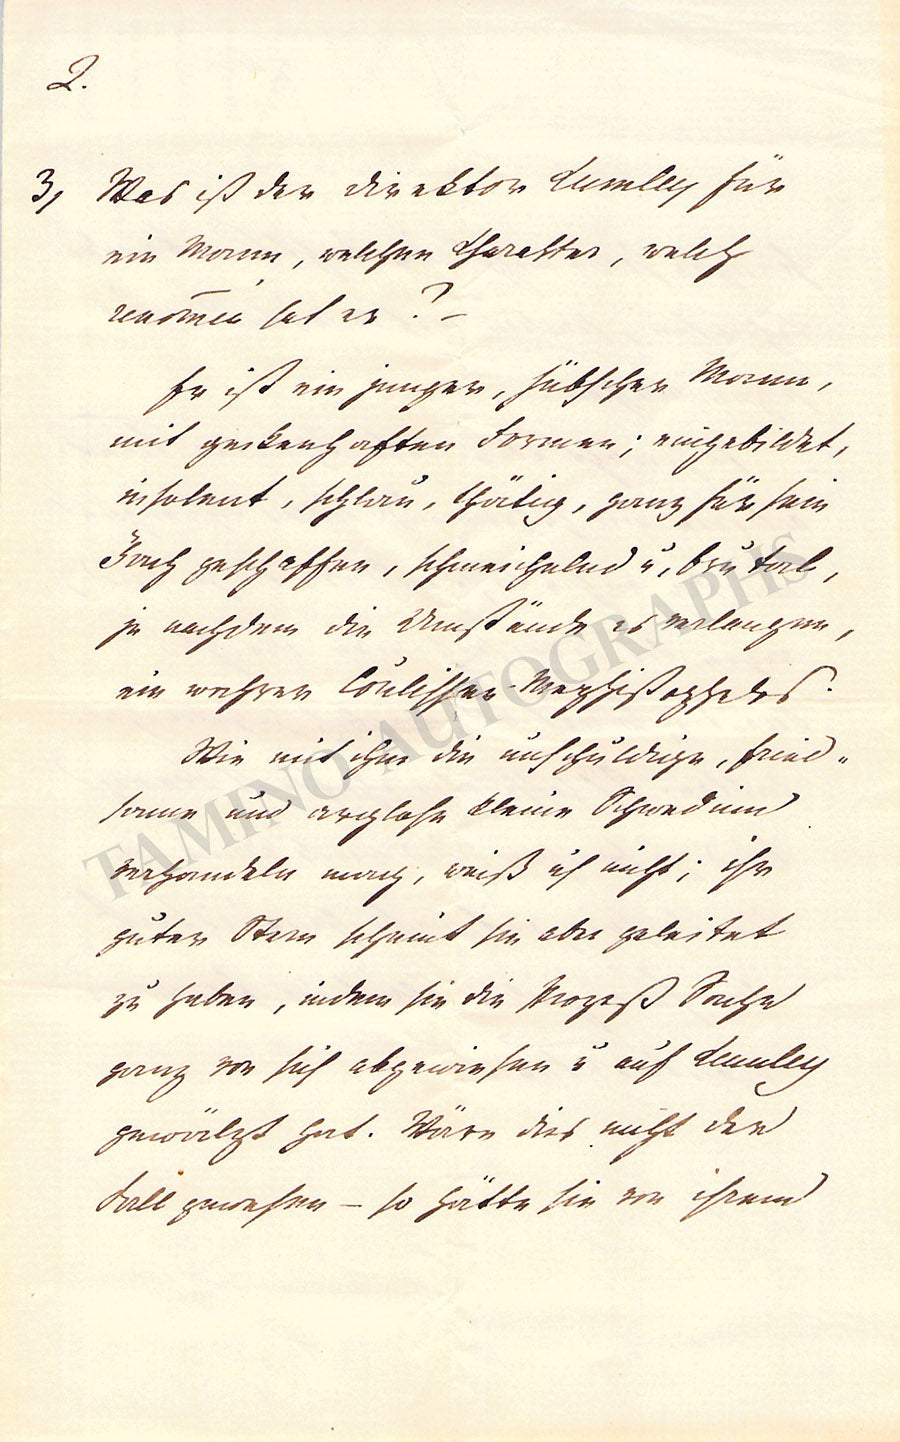 2.
3, Was ist der Direktor Lumley für
ein Mann, welchen Charakter, welch
renommée hat er? –
Er ist ein junger, hübscher Mann,
mit geckenhaften Formen; eingebildet,
insolent, schlau, thätig, ganz für sein
Fach geschaffen, schmeichelnd u, brutal,
je nachdem die Umstände es verlangen,
ein wahrer Coulissen-Mephistopheles.
Wie mit ihm die unschuldige, fried=
same und arglose kleine Schwedinn
verhandeln mag, weiß ich nicht; ihr
guter Stern scheint sie aber geleitet
zu haben, indem sie die Prozeß Sache
ganz von sich abgewiesen u auf Lumley
gewälzt hat. Wäre dies nicht der
Fall gewesen – so hätte sie von ihrem
TAMINO AUTOGRAPHS